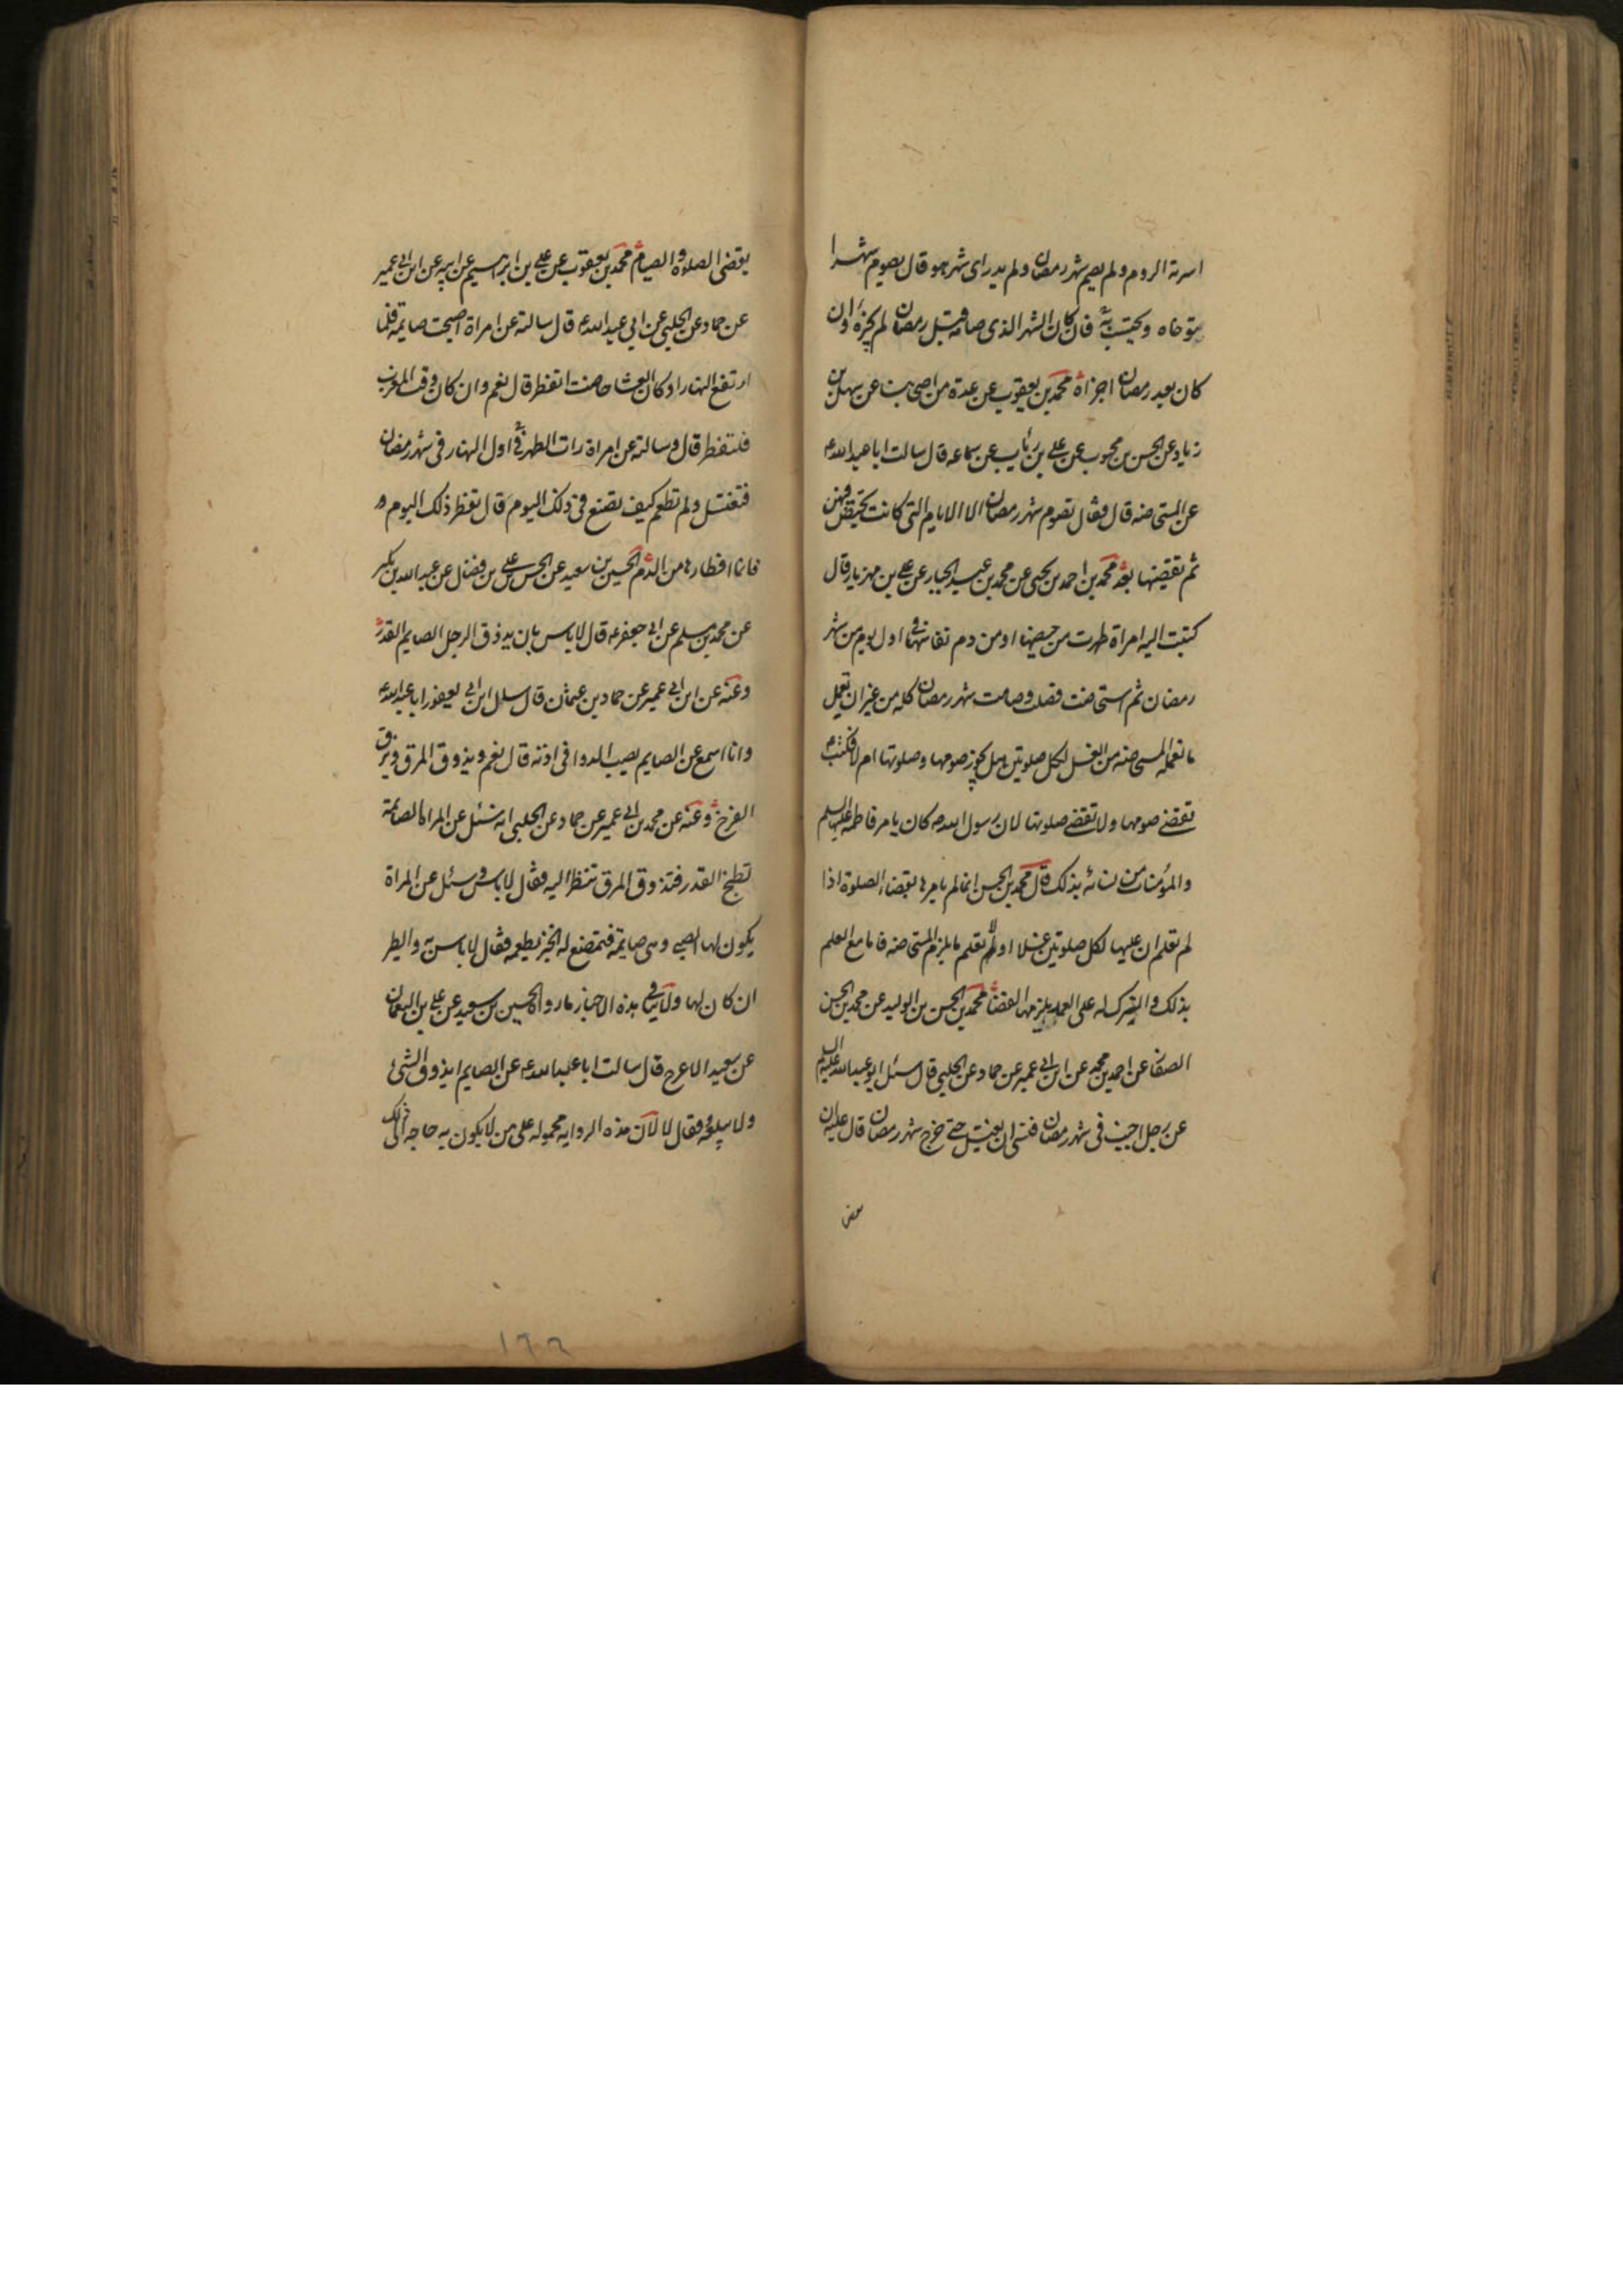 اسرته الروم ولم يصم شهر رمضان ولم يدر اى شهر هو قال يصوم شهرا
يتوخاه ويحتسب به فان كان الشهر الذى صامه قبل رمضان لم يجزه وان
كان بعد رمضان اجزاه محمد بن يعقوب عن عدة من اصحابنا عن سهل بن
زياد عن الحسن بن محبوب عن على بن رئاب عن سماعه قال سالت ابا عبد الله ع
عن المستحاضه قال فقال تصوم شهر رمضان الا الايام التى كانت تحيض فيهن
ثم تقضيها بعد محمد بن احمد بن يحيى عن محمد بن عبد الجبار عن على بن مهزيار قال
كتبت اليه امراة طهرت من حيضها او من دم نفاسها فى اول يوم من شهر
رمضان ثم استحاضت فصلت وصامت شهر رمضان كله من غير ان تعمل
ما تعمله المستحاضه من الغسل لكل صلوتين هل يجوز صومها وصلوتها ام لا فكتب ع
تقضى صومها ولا تقضى صلوتها لان رسول الله ص كان يامر فاطمه عليها السلم
والمؤمنات من نسائه بذلك قال محمد بن الحسن انما لم يامرها بقضاء الصلوة اذا
لم تعلم ان عليها لكل صلوتين غسلا او لم تعلم ما يلزم المستحاضه فاما مع العلم
بذلك والترك له على العمد يلزمها القضا محمد بن الحسن بن الوليد عن محمد بن الحسن
الصفار عن احمد بن محمد عن ابن ابى عمير عن حماد عن الحلبى قال سئل ابو عبد الله عليه السلم
عن رجل اجنب فى شهر رمضان فنسى ان يغتسل حتى خرج شهر رمضان قال عليه ان
يقضى الصلوة والصيام محمد بن يعقوب عن على بن ابراهيم عن ابيه عن ابن ابى عمير
عن حماد عن الحلبى عن ابى عبد الله ع قال سالته عن امراة اصبحت صايمة فلما
ارتفع النهار او كان العشا حاضت اتفطر قال نعم وان كان وقت المغرب
فلتفطر قال وسالته عن امراة رات الطهر فى اول النهار فى شهر رمضان
فتغتسل ولم تطعم كيف تصنع فى ذلك اليوم قال تفطر ذلك اليوم
فانما افطارها من الدم الحسين بن سعيد عن الحسن بن على بن فضال عن عبد الله بن بكير
عن محمد بن مسلم عن ابى جعفر ع قال لا باس بان يذوق الرجل الصايم القدر
وعنه عن ابن ابى عمير عن حماد بن عثمان قال سال ابن ابى يعفور ابا عبد الله ع
وانا اسمع عن الصايم يصب الدوا فى اذنه قال نعم ويذوق المرق ويزق
الفرخ وعنه عن محمد بن ابى عمير عن حماد عن الحلبى انه سئل عن المراة الصائمة
تطبخ القدر فتذوق المرق تنظر اليه فقال لا باس وسئل عن المراة
يكون لها الصبى وهى صايمة فتمضغ له الخبز تطعمه فقال لا باس به والطير
ان كان لها ولا ينافى هذه الاخبار ما رواه الحسين بن سعيد عن على بن النعمان
عن سعيد الاعرج قال سالت ابا عبد الله ع عن الصايم ايذوق الشى
ولا يبلعه فقال لا لان هذه الروايه محموله على من لا يكون به حاجه الى ذلك